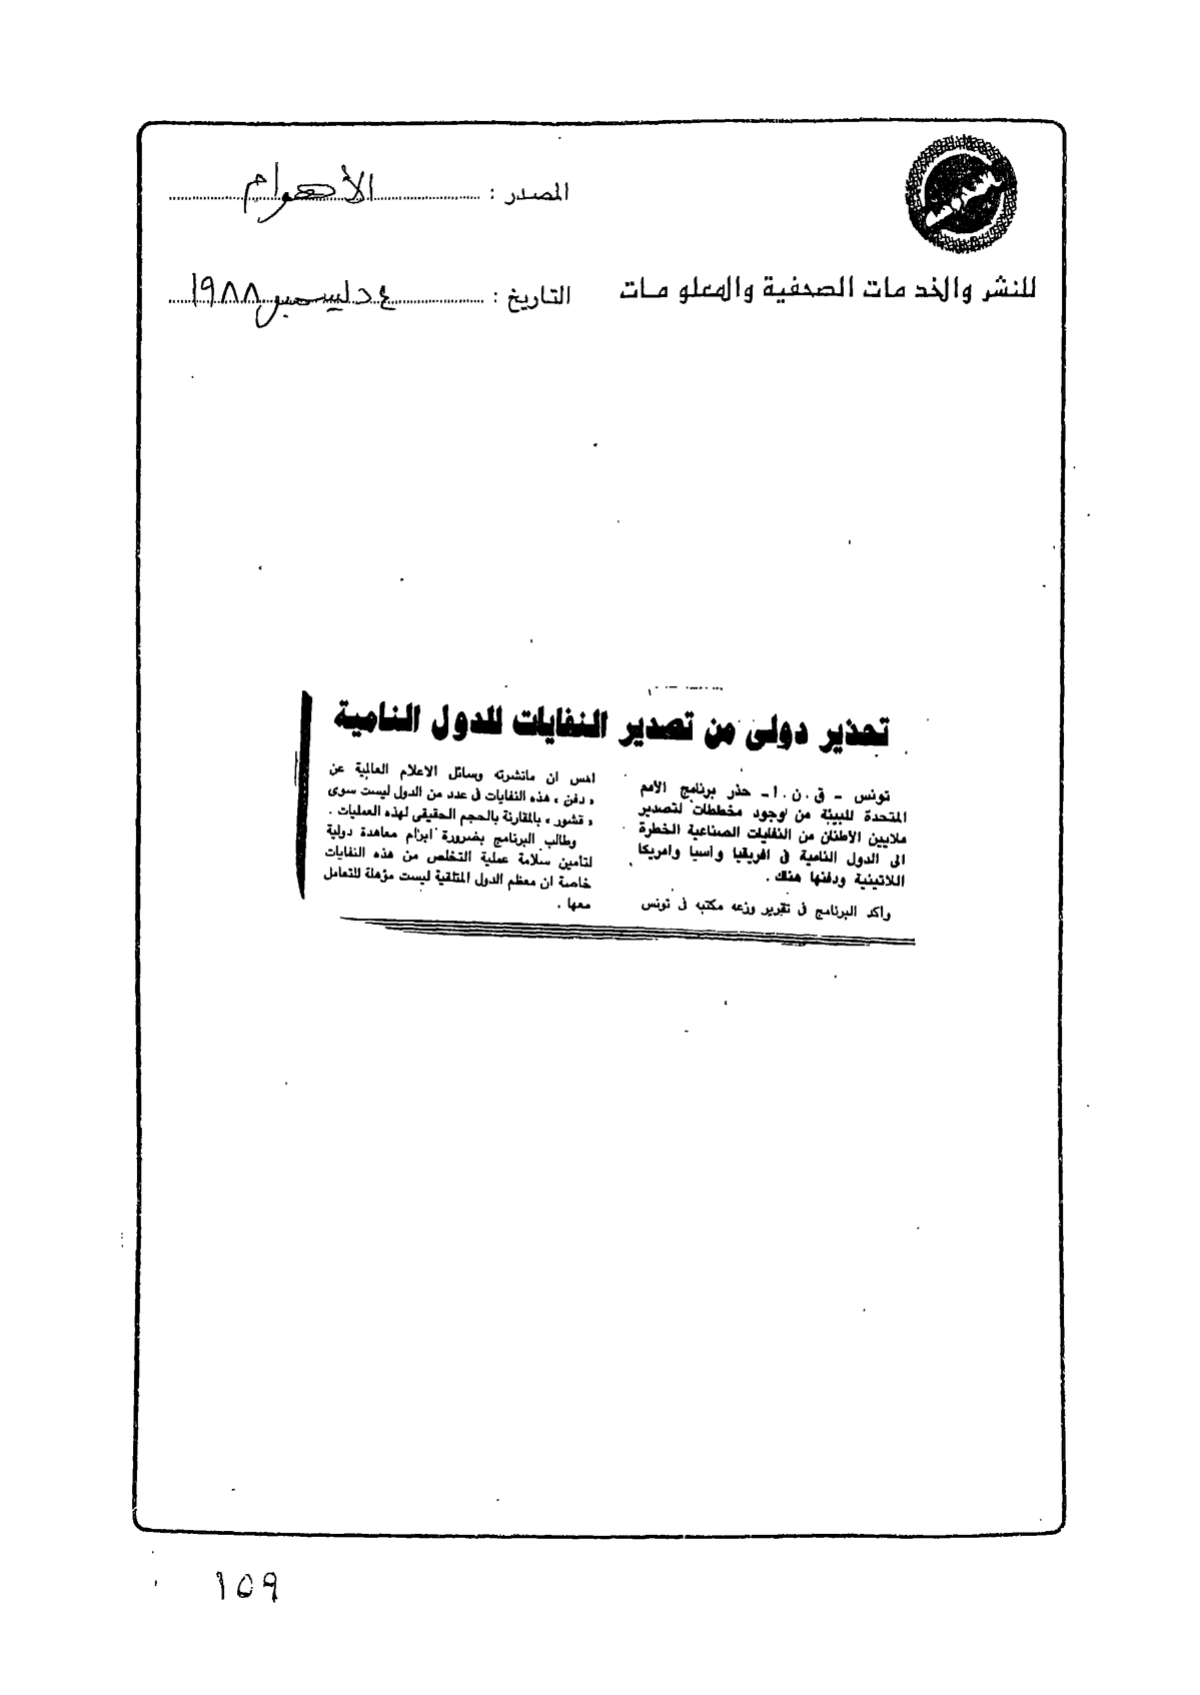 المصدر : الأهرام
للنشر والخدمات الصحفية والمعلومات
التاريخ : ٤ ديسمبر ١٩٨٨
تحذير دولى من تصدير النفايات للدول النامية
تونس - ق . ن . ا - حذر برنامج الامم
المتحدة للبيئة من وجود مخططات لتصدير
ملايين الاطنان من النفايات الصناعية الخطرة
الى الدول النامية فى افريقيا واسيا وامريكا
اللاتينية ودفنها هناك .
واكد البرنامج فى تقرير وزعه مكتبه فى تونس
امس ان مانشرته وسائل الاعلام العالمية عن
« دفن » هذه النفايات فى عدد من الدول ليست سوى
« قشور » بالمقارنة بالحجم الحقيقى لهذه العمليات .
وطالب البرنامج بضرورة ابرام معاهدة دولية
لتامين سلامة عملية التخلص من هذه النفايات
خاصة ان معظم الدول المتلقية ليست مؤهلة للتعامل
معها .
١٥٩